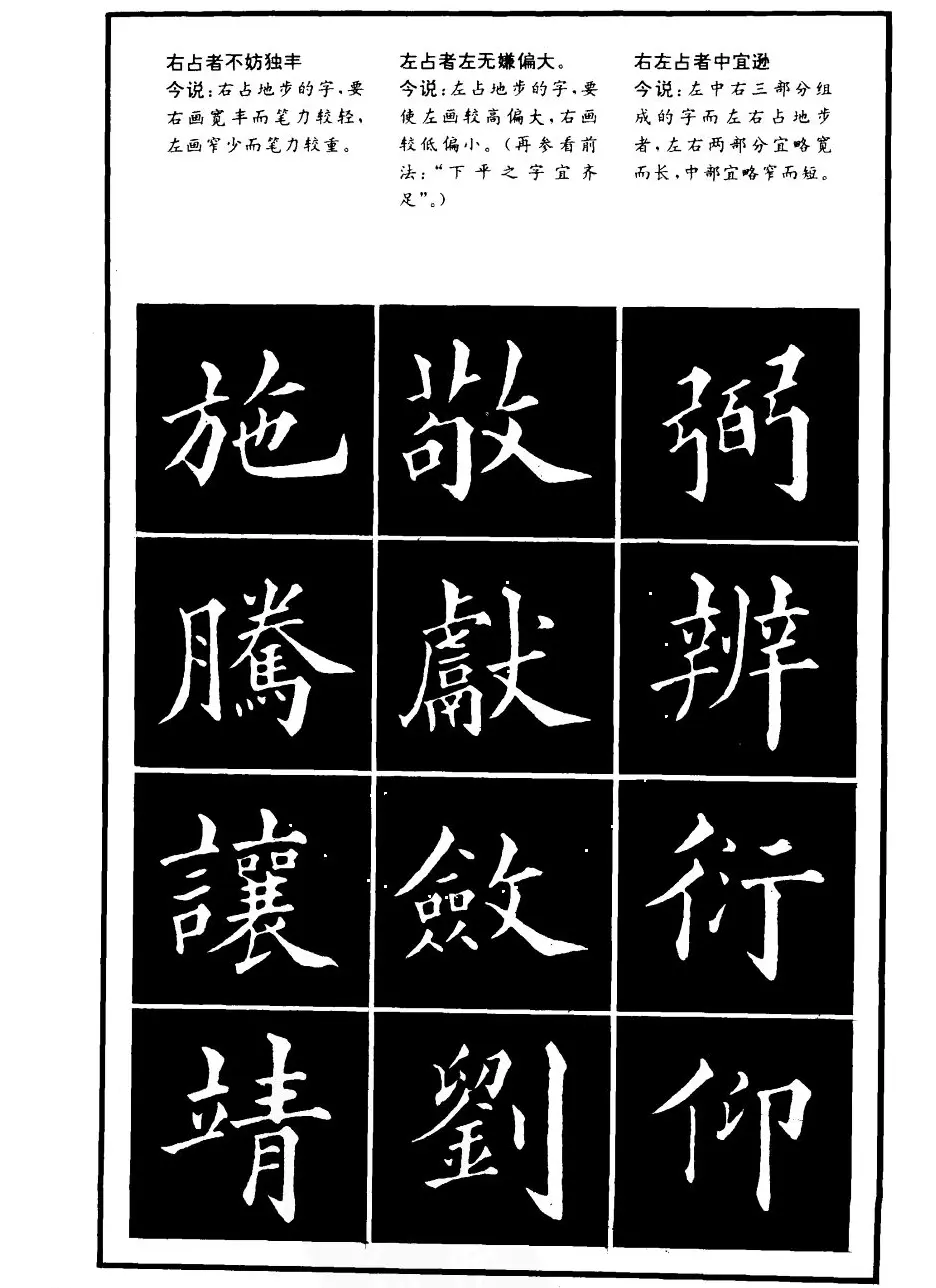 右占者不妨独丰
今说：右占地步的字，要
右画宽丰而笔力较轻，
左画窄少而笔力较重。
左占者左无嫌偏大。
今说：左占地步的字，要
使左画较高偏大，右画
较低偏小。（再参看前
法：“下平之字宜齐
足”。）
右左占者中宜逊
今说：左中右三部分组
成的字而左右占地步
者，左右两部分宜略宽
而长，中部宜略窄而短。
施
騰
讓
靖
敬
獻
斂
劉
弼
辨
衍
仰